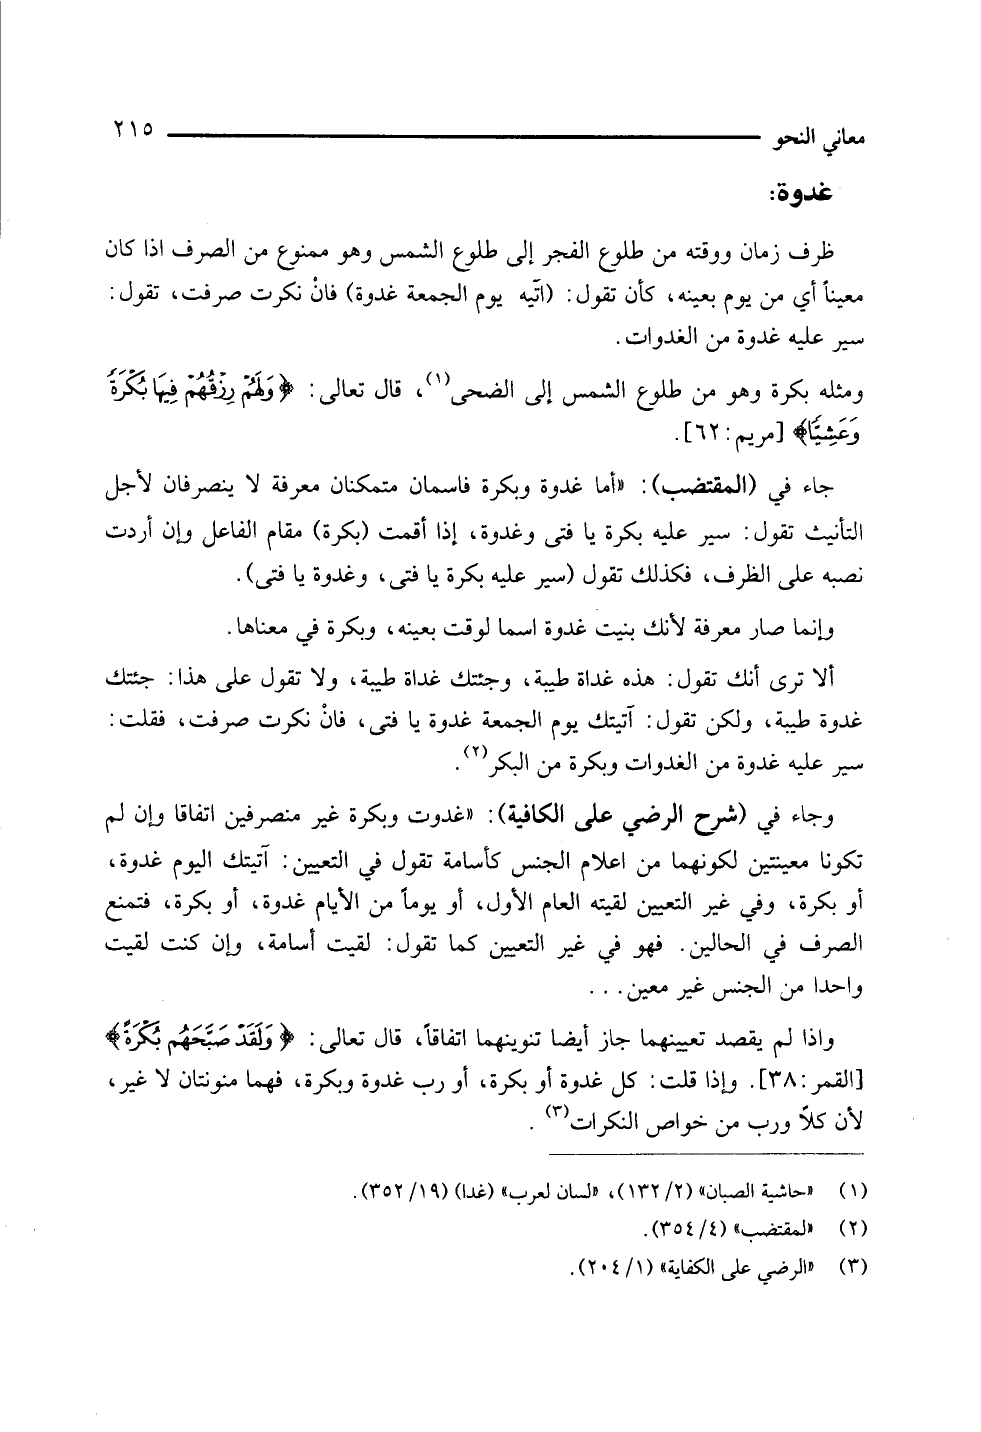 معاني النحو ٢١٥
غدوة:
ظرف زمان ووقته من طلوع الفجر إلى طلوع الشمس وهو ممنوع من الصرف اذا كان
معيناً أي من يوم بعينه، كأن تقول: (اتّيه يوم الجمعة غدوة) فانْ نكرت صرفت، تقول:
سير عليه غدوة من الغدوات.
ومثله بكرة وهو من طلوع الشمس إلى الضحى(١)، قال تعالى: ﴿وَلَهُمْ رِزْقُهُمْ فِيهَا بُكْرَةً
وَعَشِيًّا﴾ [مريم: ٦٢].
جاء في (المقتضب): «أما غدوة وبكرة فاسمان متمكنان معرفة لا ينصرفان لأجل
التأنيث تقول: سير عليه بكرة يا فتى وغدوة، إذا أقمت (بكرة) مقام الفاعل وإن أردت
نصبه على الظرف، فكذلك تقول (سير عليه بكرة يا فتى، وغدوة يا فتى).
وإنما صار معرفة لأنك بنيت غدوة اسما لوقت بعينه، وبكرة في معناها.
ألا ترى أنك تقول: هذه غداة طيبة، وجئتك غداة طيبة، ولا تقول على هذا: جئتك
غدوة طيبة، ولكن تقول: آتيتك يوم الجمعة غدوة يا فتى، فانْ نكرت صرفت، فقلت:
سير عليه غدوة من الغدوات وبكرة من البكر(٢).
وجاء في (شرح الرضي على الكافية): «غدوت وبكرة غير منصرفين اتفاقا وإن لم
تكونا معينتين لكونهما من اعلام الجنس كأسامة تقول في التعيين: آتيتك اليوم غدوة،
أو بكرة، وفي غير التعيين لقيته العام الأول، أو يوماً من الأيام غدوة، أو بكرة، فتمنع
الصرف في الحالين. فهو في غير التعيين كما تقول: لقيت أسامة، وإن كنت لقيت
واحدا من الجنس غير معين...
واذا لم يقصد تعيينهما جاز أيضا تنوينهما اتفاقاً، قال تعالى: ﴿وَلَقَدْ صَبَّحَهُم بُكْرَةً﴾
[القمر: ٣٨]. وإذا قلت: كل غدوة أو بكرة، أو رب غدوة وبكرة، فهما منونتان لا غير،
لأن كلاً ورب من خواص النكرات(٣).
(١) «حاشية الصبان» (٢/ ١٣٢)، «لسان لعرب» (غدا) (١٩/ ٣٥٢).
(٢) «لمقتضب» (٤/ ٣٥٤).
(٣) «الرضي على الكفاية» (١/ ٢٠٤).